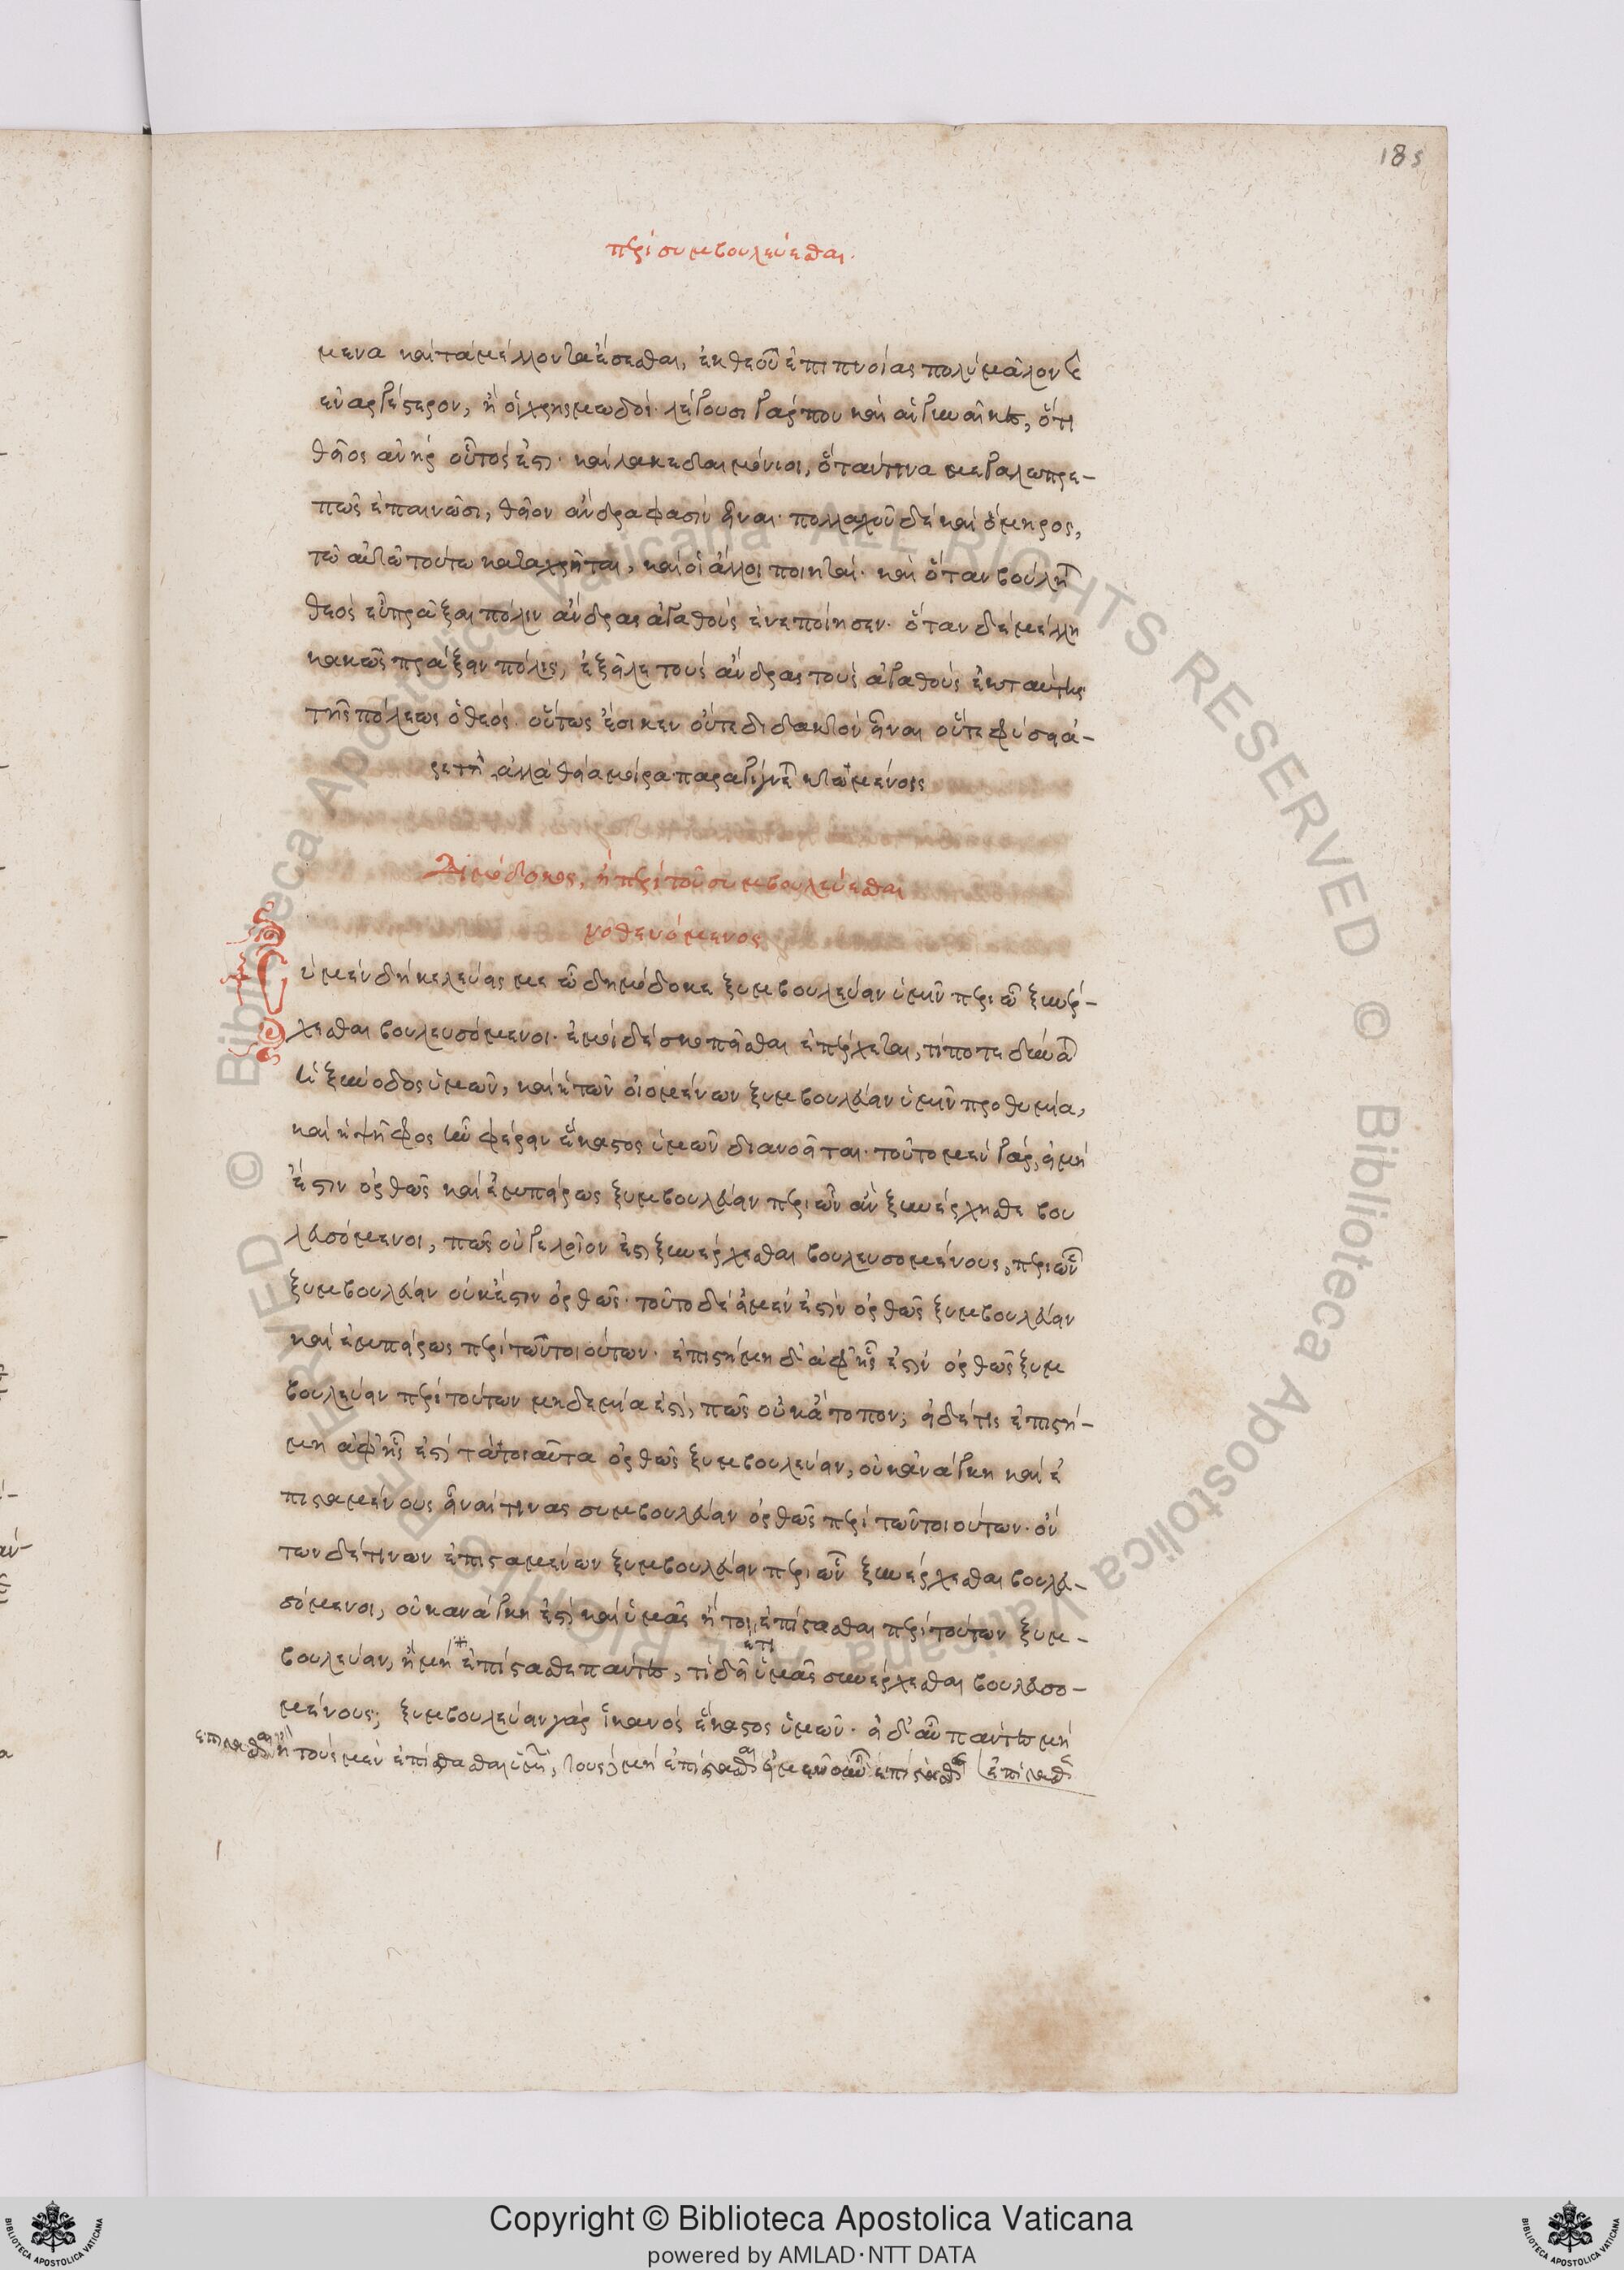 185
περὶ συμβουλεύεσθαι.
μενα καὶ τὰ μέλλοντα ἔσεσθαι, ἐκ θεοῦ ἐπιπνοίας πολὺ μᾶλον καὶ
ἐναργέστερον, ἢ οἱ χρησμωδοί· λέγουσι γάρ που καὶ αἱ γυναῖκες, ὅτι
θεῖος ἀνὴρ οὗτός ἐστι· καὶ λακεδαιμόνιοι, ὅταν τινα μεγαλωπρε-
πῶς ἐπαινῶσι, θεῖον ἄνδρα φασὶν εἶναι· πολλαχοῦ δὲ καὶ ὅμηρος,
τῶ αὐτῶ τούτω καταχρῆται, καὶ οἱ ἄλλοι ποιηταί· καὶ ὅταν βούληται
θεὸς εὖ πρᾶξαι πόλιν ἄνδρας ἀγαθοὺς ἐνεποίησεν· ὅταν δὲ μέλλη
κακῶς πράξειν πόλις, ἐξεῖλε τοὺς ἄνδρας τοὺς ἀγαθοὺς ἐκ ταύτης
τῆς πόλεως ὁ θεός· οὕτως ἔοικεν οὔτε διδακτὸν εἶναι οὔτε φύσει ἀ-
ρετὴ, ἀλλὰ θεία μοίρα παραγίγνεται κτωμένοις
Δημόδοκος, ἢ περὶ τοῦ συμβουλεύεσθαι
νοθευόμενος
Σὺ μὲν δὴ κελεύεις με ὦ δημόδοκε ξυμβουλεύειν ὑμῖν περὶ ὧν ξυνέρ-
χεσθαι βουλευσόμενοι· ἐμοὶ δὲ σκοπεῖσθαι ἐπέρχεται, τί ποτε δύναται
ἡ ξύνοδος ὑμῶν, καὶ ἡ τῶν οἰομένων ξυμβουλεύειν ὑμῖν προθυμία,
καὶ ἡ ψῆφος ἣν φέρειν ἕκαστος ὑμῶν διανοεῖται· τοῦτο μὲν γὰρ, εἰ μή
ἐστιν ὀρθῶς καὶ ἐμπείρως ξυμβουλεύειν περὶ ὧν ἂν ξυνέρχησθε βου
λευσόμενοι, πῶς οὐ γελοῖον ἐστι ξυνέρχεσθαι βουλευσομένους, περὶ ὧν
ξυμβουλεύειν οὐκ ἔστιν ὀρθῶς· τοῦτο δὲ εἰ μέν ἐστιν ὀρθῶς ξυμβουλεύειν
καὶ ἐμπείρως περὶ τῶν τοιούτων· ἐπιστήμη δ' ἀφ' ἧς ἐστὶν ὀρθῶς ξυμ
βουλεύειν περὶ τούτων μηδεμία ἐστὶ, πῶς οὐκ ἄτοπον; εἰ δέ τις ἐπιστή-
μη ἀφ' ἧς ἐστὶ τὰ τοιαῦτα ὀρθῶς ξυμβουλεύειν, οὐκ ἀνάγκη καὶ ἐ
πισταμένους εἶναί τινας συμβουλεύειν ὀρθῶς περὶ τῶν τοιούτων· ὄν
των δέ τινων ἐπισταμένων ξυμβουλεύειν περὶ ὧν ξυνέρχεσθαι βουλευ-
σόμενοι, οὐκ ανάγκη ἐστὶ καὶ ὑμᾶς ἤτοι ἐπίστασθαι περὶ τούτων ξυμ-
βουλεύειν, ἢ μὴ ἐπίστασθε παντες, τί δεῖ ἔτι ὑμᾶς συνέρχεσθαι βουλευσο-
μένους; ξυμβουλεύειν γὰρ ἱκανὸς ἕκαστος ὑμῶν· εἰ δ' αὖ πάντες μὴ
ἐπίστασθαι ἢ τοὺς μὲν ἐπίστασθαι ὑμῶν, τοὺς δὲ μὴ ἐπίστασθαι εἰ μὲν οὖν ἐπίστασθε
ἐπίστασθε
Copyright © Biblioteca Apostolica Vaticana
powered by AMLAD·NTT DATA